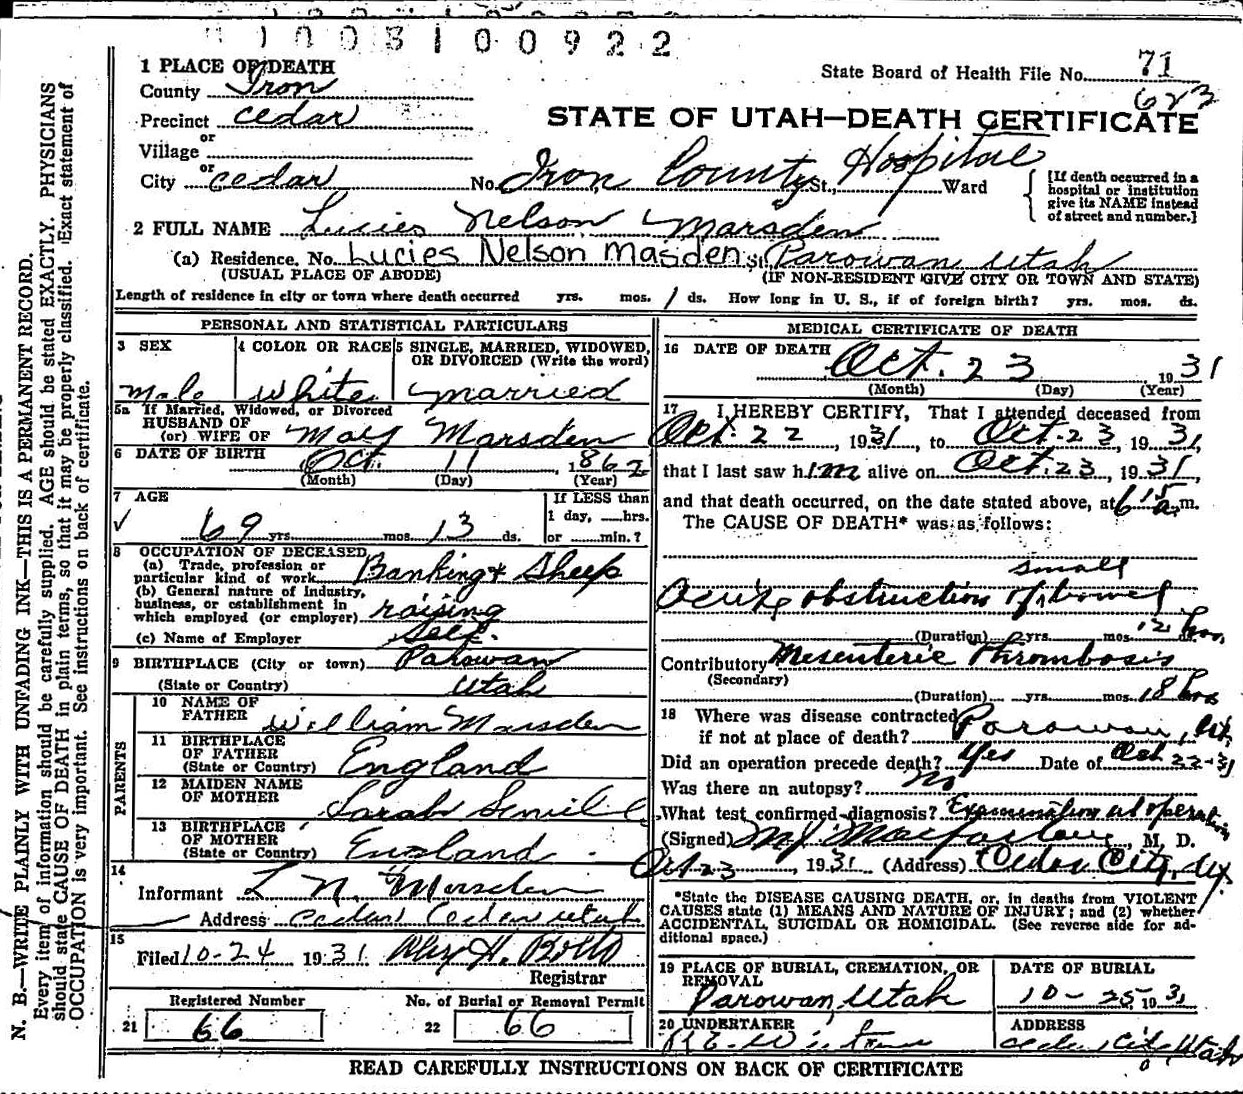 1003100922
State Board of Health File No. 71
623
STATE OF UTAH—DEATH CERTIFICATE
1 PLACE OF DEATH
County Iron
Precinct Cedar
or
Village
or
City Cedar No. Iron County St., Hospital Ward
[If death occurred in a
hospital or institution
give its NAME instead
of street and number.]
2 FULL NAME Lucies Nelson Marsden
(a) Residence. No. Lucies Nelson Masden St. Parowan Utah
(USUAL PLACE OF ABODE) (IF NON-RESIDENT GIVE CITY OR TOWN AND STATE)
Length of residence in city or town where death occurred yrs. mos. 1 ds. How long in U. S., if of foreign birth? yrs. mos. ds.
PERSONAL AND STATISTICAL PARTICULARS
3 SEX
Male
4 COLOR OR RACE
White
5 SINGLE, MARRIED, WIDOWED,
OR DIVORCED (Write the word)
Married
5a If Married, Widowed, or Divorced
HUSBAND OF
(or) WIFE OF May Marsden
6 DATE OF BIRTH Oct. 11, 1862
(Month) (Day) (Year)
7 AGE
69 yrs. mos. 13 ds.
If LESS than
1 day, hrs.
or min.?
8 OCCUPATION OF DECEASED
(a) Trade, profession or
particular kind of work Banking & Sheep
(b) General nature of industry,
business, or establishment in
which employed (or employer) raising
(c) Name of Employer Self.
9 BIRTHPLACE (City or town) Parowan
(State or Country) Utah
PARENTS
10 NAME OF
FATHER William Marsden
11 BIRTHPLACE
OF FATHER
(State or Country) England
12 MAIDEN NAME
OF MOTHER Sarah
13 BIRTHPLACE
OF MOTHER
(State or Country) England
14
Informant L N Marsden
Address Cedar Cedar Utah
15
Filed 10-24 1931
Registrar
21 Registered Number
66
22 No. of Burial or Removal Permit
66
MEDICAL CERTIFICATE OF DEATH
16 DATE OF DEATH Oct. 23 1931
(Month) (Day) (Year)
17 I HEREBY CERTIFY, That I attended deceased from
Oct. 22, 1931, to Oct. 23, 1931,
that I last saw him alive on Oct. 23, 1931,
and that death occurred, on the date stated above, at 6 15 a.m.
The CAUSE OF DEATH* was as follows:
small
Acute obstruction of bowel
(Duration) yrs. mos. 12 ds. hrs.
Contributory Mesenteric Thrombosis
(Secondary)
(Duration) yrs. mos. 18 hrs
18 Where was disease contracted
if not at place of death? Parowan, Ut.
Did an operation precede death? Yes Date of Oct 22-31
Was there an autopsy? No
What test confirmed diagnosis? Examination at operation
(Signed) M. J. Macfarlane, M. D.
Oct 23, 1931 (Address) Cedar City, Ut.
*State the DISEASE CAUSING DEATH, or, in deaths from VIOLENT
CAUSES state (1) MEANS AND NATURE OF INJURY; and (2) whether
ACCIDENTAL, SUICIDAL OR HOMICIDAL. (See reverse side for ad-
ditional space.)
19 PLACE OF BURIAL, CREMATION, OR
REMOVAL
Parowan, Utah
DATE OF BURIAL
10-25 1931
20 UNDERTAKER
ADDRESS
Cedar City Utah
READ CAREFULLY INSTRUCTIONS ON BACK OF CERTIFICATE
N. B.—WRITE PLAINLY WITH UNFADING INK—THIS IS A PERMANENT RECORD.
Every item of information should be carefully supplied. AGE should be stated EXACTLY. PHYSICIANS
should state CAUSE OF DEATH in plain terms, so that it may be properly classified. Exact statement of
OCCUPATION is very important. See instructions on back of certificate.